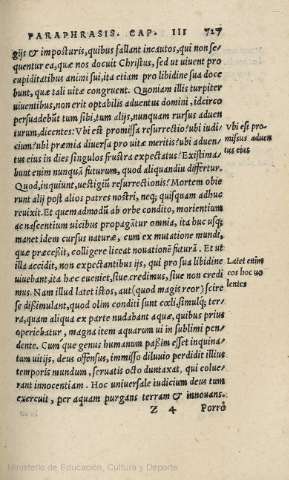 PARAPHRASIS. CAP. III 727
gijs & imposturis, quibus fallant incautos, qui non se-
quentur ea, quæ nos docuit Christus, sed ut uiuent pro
cupiditatibus animi sui, ita etiam pro libidine sua doce
bunt, quæ tali uitæ congruent. Quoniam illis turpiter
uiuentibus, non erit optabilis aduentus domini, idcirco
persuadebūt tum sibi, tum alijs, nunquam rursus aduen
turum, dicentes: Vbi est promissa resurrectio? ubi iudi
cium? ubi præmia diuersa pro uitæ meritis? ubi aduen
tus eius in dies singulos frustra expectatus? Existima
bunt enim nunquā futurum, quod aliquandiu differtur.
Quod, inquiunt, uestigiū resurrectionis? Mortem obie
runt alij post alios patres nostri, neq; quisquam adhuc
reuixit. Et quemadmodū ab orbe condito, morientium
ac nascentium uicibus propagātur omnia, ita huc usq;
manet idem cursus naturæ, cum ex mutatione mundi,
quæ præcessit, colligere liceat nouationē futurā. Et ut
illa accidit, non expectantibus ijs, qui pro sua libidine
uiuebant, ita hæc eueniet, siue credimus, siue non credi
mus. Nam illud latet istos, aut (quod magis reor) scire
se dissimulant, quod olim conditi sunt cœli, simulq; ter=
ra, quam aliqua ex parte nudabant aquæ, quibus prius
operiebatur, magna item aquarum ui in sublimi pen=
dente. Cum que genus humanum passim esset inquina=
tum uitijs, deus offensus, immisso diluuio perdidit illius
temporis mundum, seruatis octo duntaxat, qui colue=
rant innocentiam. Hoc uniuersale iudicium deus tum
exercuit, per aquam purgans terram & innouans.
Z 4 Porrò
Vbi est pro=
missus aduen
tus eius
Latet enim
eos hoc uo
lentes
Ministerio de Educación, Cultura y Deporte